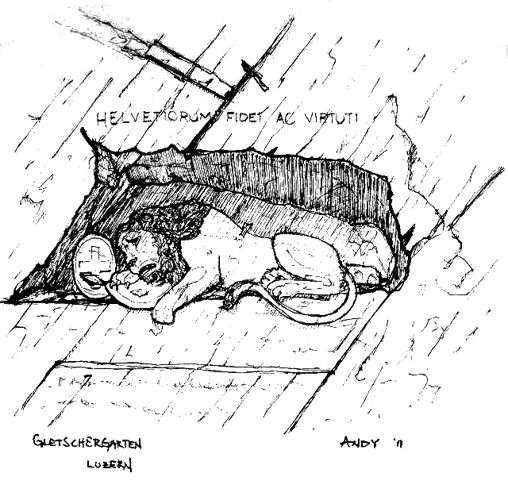 HELVETIORUM FIDEI AC VIRTUTI
GLETSCHERGARTEN
LUZERN
ANDY '11